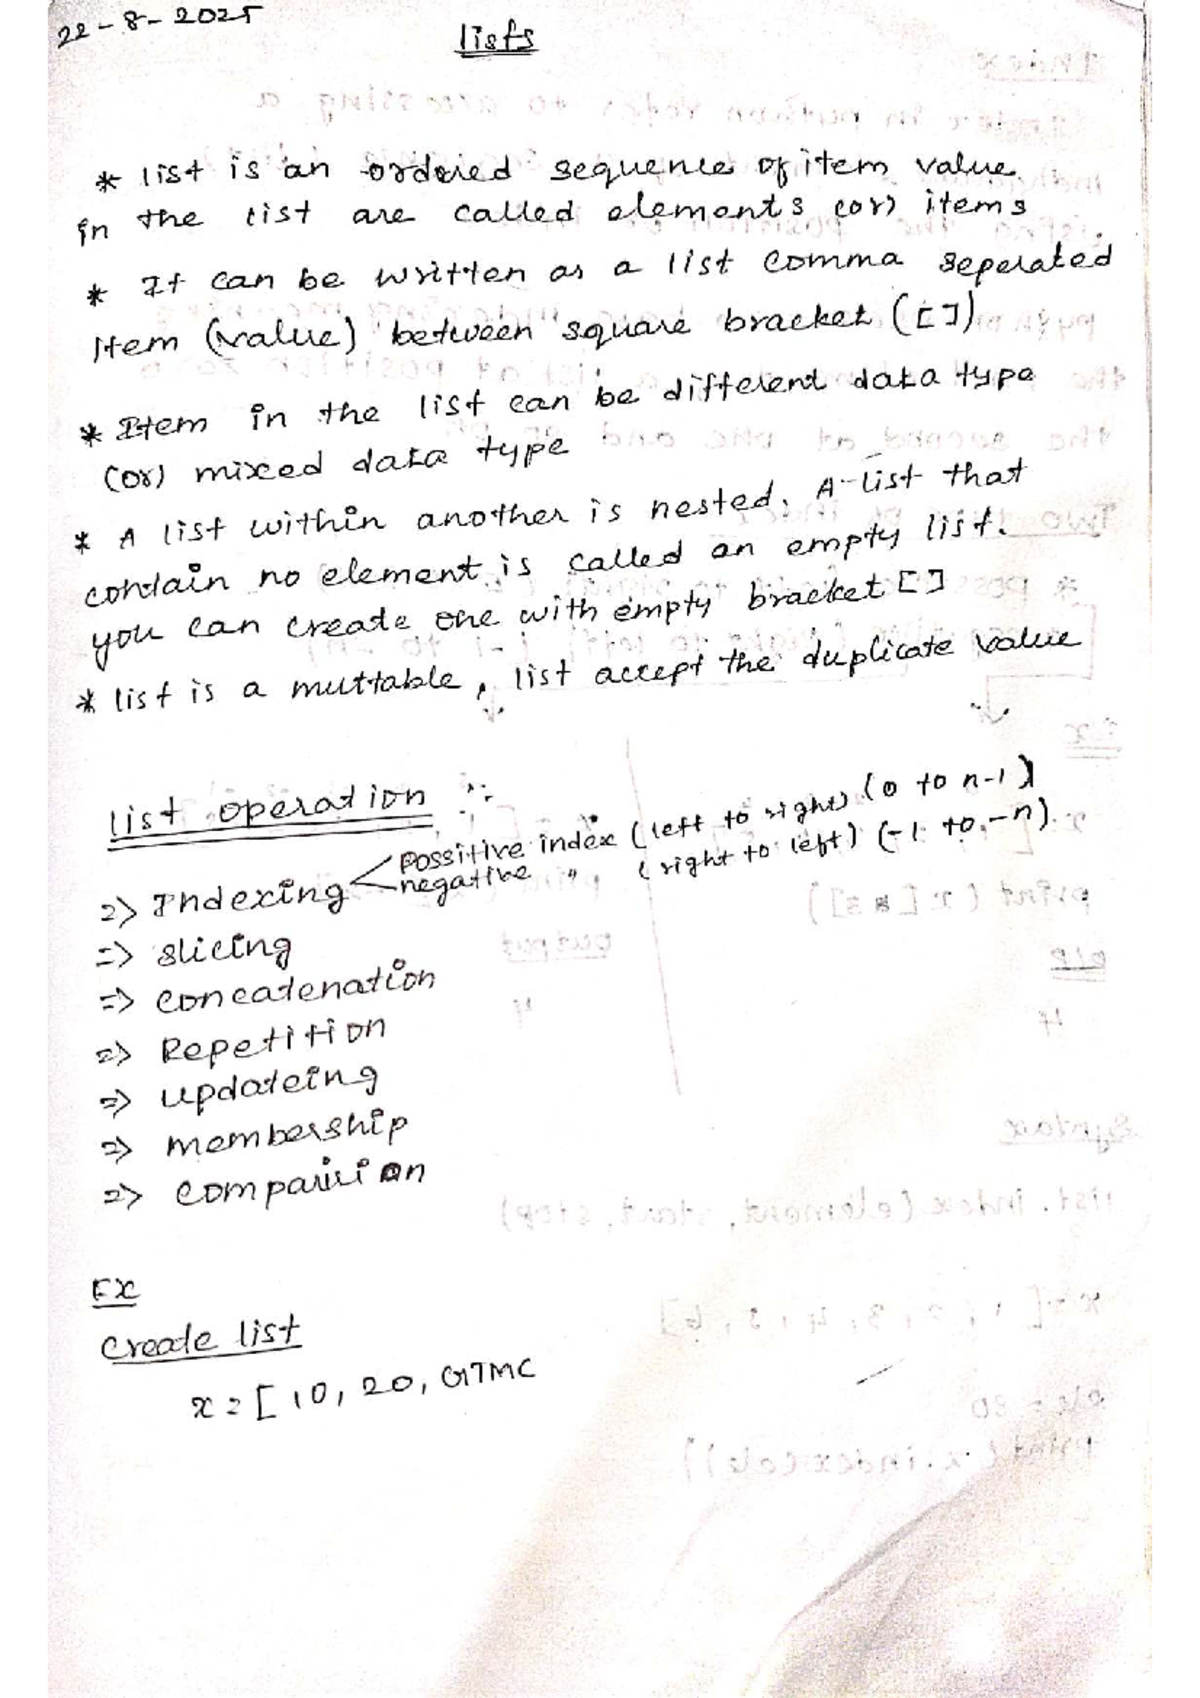 22-8-2025
lists
* list is an ordered sequence of item value
in the list are called elements (or) items
* It can be written as a list comma seperated
Item (value) between square bracket ([])
* Item in the list can be different data type
(or) mixed data type
* A list within another is nested. A list that
contain no element is called an empty list.
you can create one with empty bracket []
* list is a muttable, list accept the duplicate value
list operation :-
=> Indexing
possitive index (left to right) (0 to n-1)
negative " (right to left) (-1 to -n).
=> slicing
=> concatenation
=> Repetition
=> updateing
=> membership
=> comparision
Ex
create list
x = [10, 20, GTMC